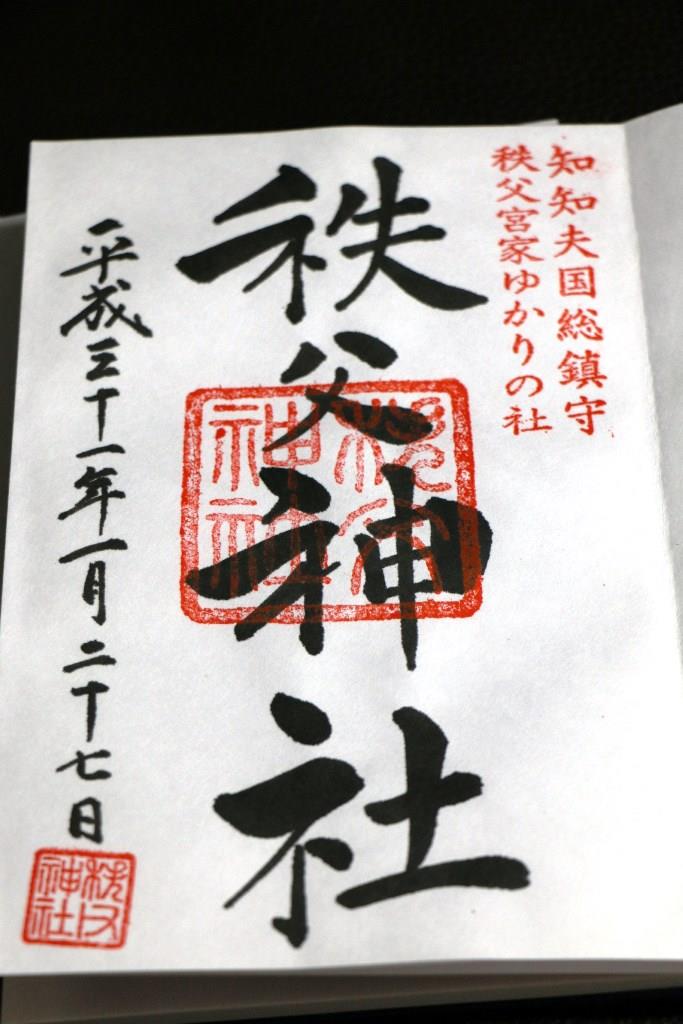 知知夫国総鎮守
秩父宮家ゆかりの社
秩父神社
秩父神社
平成三十一年一月二十七日
秩父神社